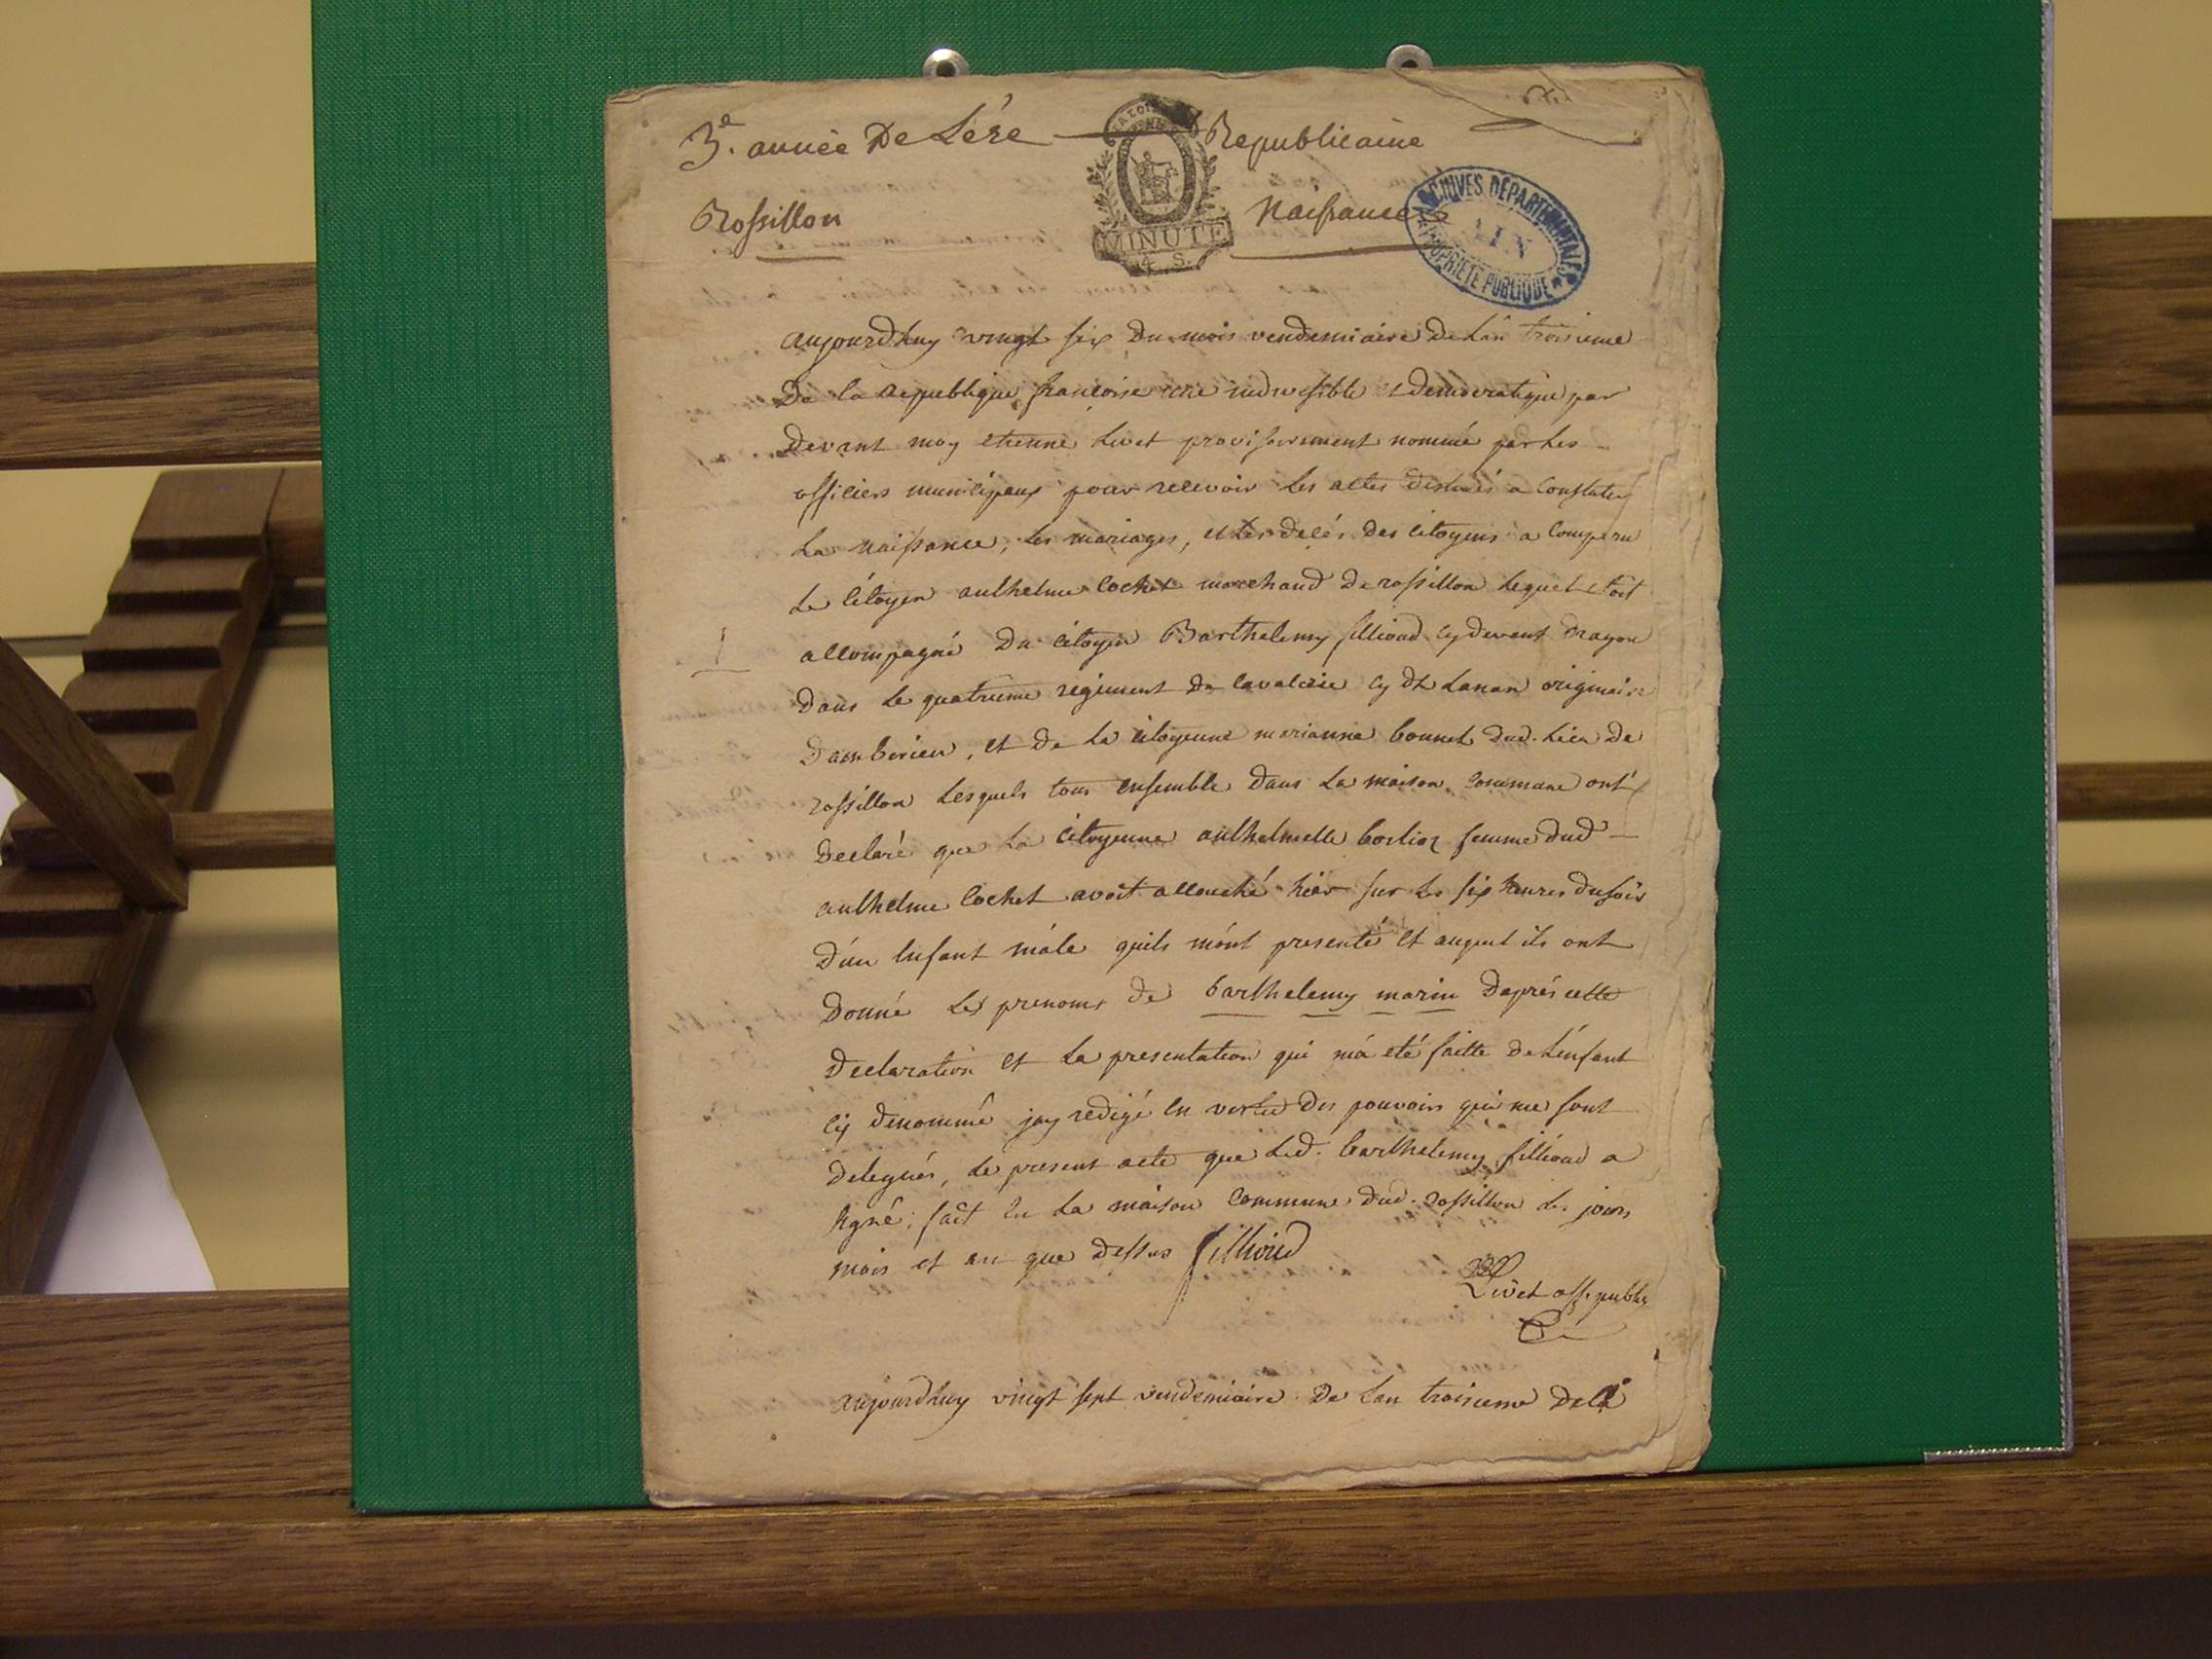 3e. année De Lére Republicaine
LA LOI
MINUTE
4. S.
Rossillon Naissances
ARCHIVES DEPARTEMENTALES
AIN
PROPRIETE PUBLIQUE
aujourdhuy vingt six Du mois vendemiaire De Lan troisieme
De la Republique francoise une indivisible et democratique par
Devant moy etienne Livet provisoirement nommé par Les
officiers municipaux pour recevoir Les actes destinés a Constater
La naissance, Les mariages, et Les decés des Citoyens a Comparu
Le Citoyen anthelme Cochet marchand De rossillon Lequel etoit
1
accompagné Du Citoyen Barthelemy fillioud cy devant dragon
Dans Le quatrieme regiment De Cavalerie cy dt originaire
Damberieu, et De La Citoyenne marianne bonnet dud. Lieu De
rossillon Lesquels tous ensemble Dans La maison Commune ont
Declaré que La Citoyenne anthelmette borlioz femme dud
anthelme Cochet avoit accouché hier sur Les six heures Du soir
D'un Enfant mâle quils m'ont presenté et auquel ils ont
Donné Les prenoms de barthelemy marin Daprés cette
Declaration et La presentation qui m'a eté faitte De L'enfant
cy denommé jay redigé En vertu des pouvoirs qui me sont
Delegués, Le present acte que Led. barthelemy fillioud a
signé; fait En La maison Commune dud. rossillon Les jours
mois et an que Dessus fillioud
Livet off. public
aujourdhuy vingt sept vendemiaire De Lan troisieme De La